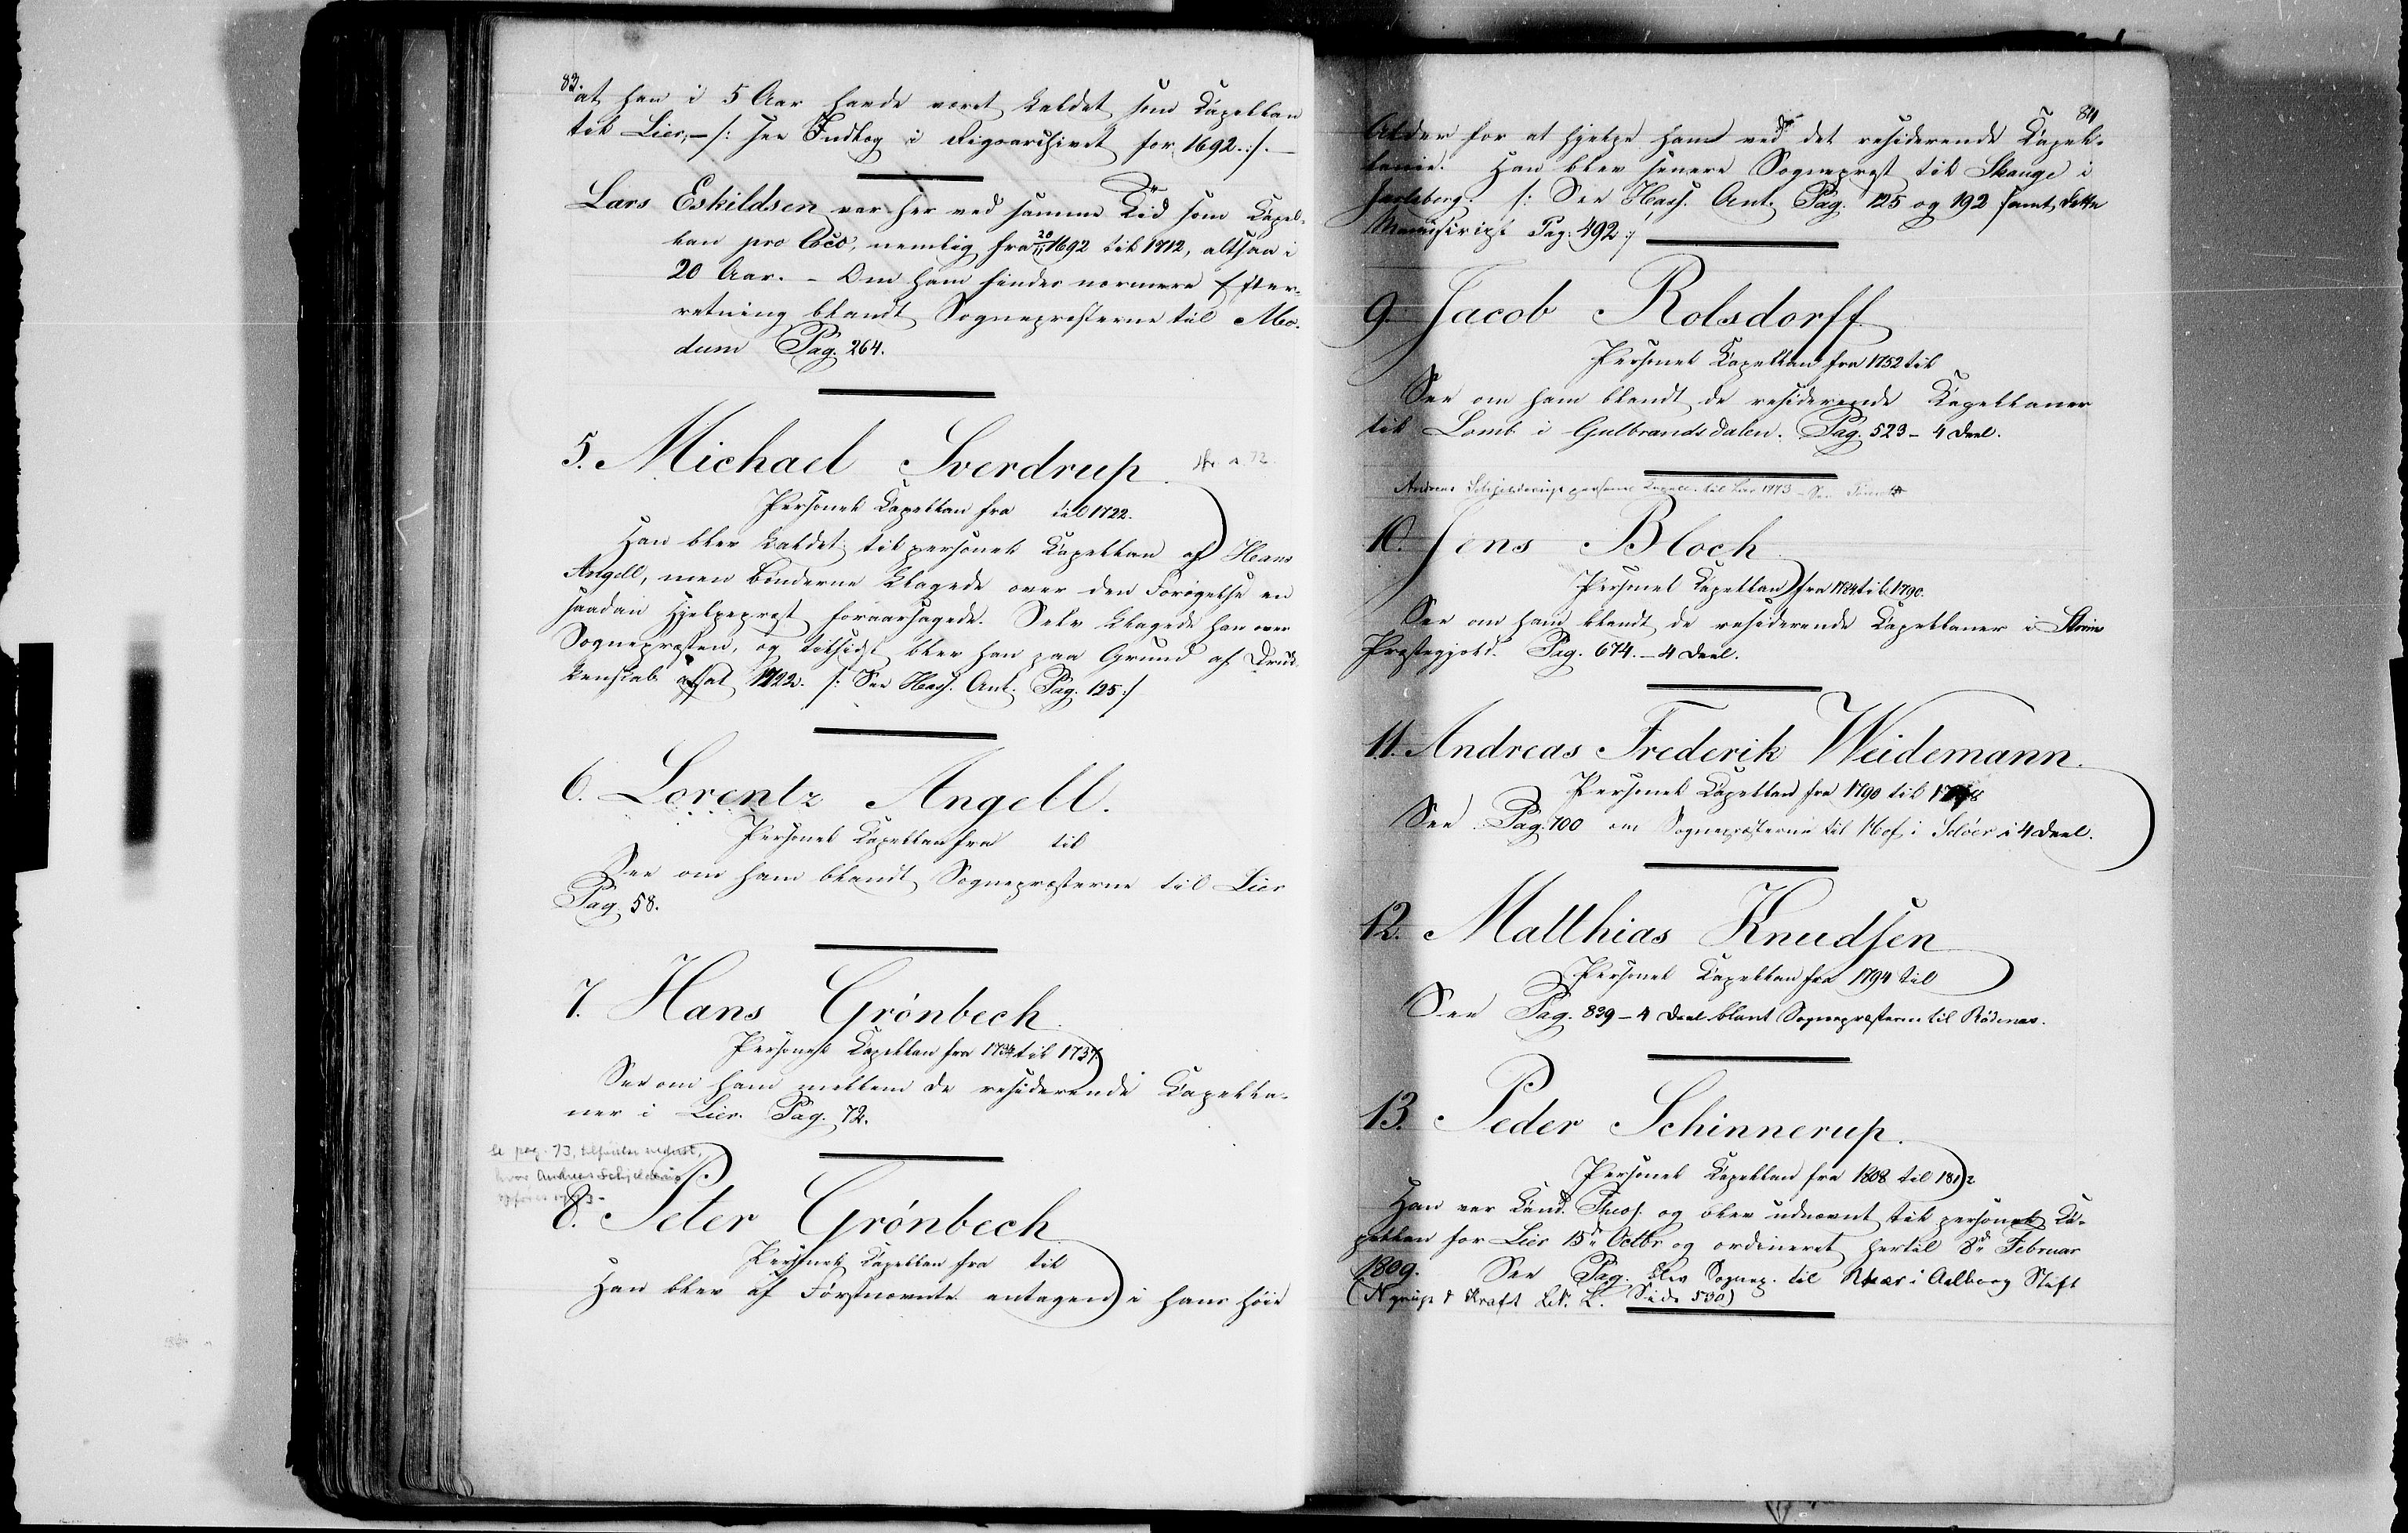 83.
at han i 5 Aar havde været kaldet som Capellan
til Lier, – /: see Indlæg i Rigsarchivet for 1692. :/. –
Lars Eskildsen var her ved samme Tid som Capel-
lan pro loco, nemlig fra 20/11 1692 til 1712, altsaa i
20 Aar. – Om ham findes nærmere Efter-
retning blandt Sognepræsterne til Mo-
dum Pag. 264.
5. Michael Sverdrup
Personel Capellan fra til 1722.
Han blev kaldet til personel Capellan af Hans
Angell, men Bønderne klagede over den Forøgelse en
saadan Hjelpeprest foraarsagede. Selv klagede han over
Sognepræsten, og tilsidst blev han paa Grund af Druk-
kenskab afsat 1722. /: See Hasj. Ant. Pag. 125 :/
6. Lorentz Angell.
Personel Capellan fra til
See om ham blandt Sognepræsterne til Lier
Pag. 58.
7. Hans Grønbech
Personel Capellan fra 1734 til 1737
See om ham mellem de residerende Capella-
ner i Lier. Pag. 72.
Se pag. 73, nederst,
hvor Andreas Schjelderup
opføres
8. Peter Grønbech
Personel Capellan fra til
Han blev af Førstnævnte antagen i hans høie
84
Alder for at hjelpe ham ved det residerende Capel-
lanie. Han blev senere Sogneprest til Skauge i
Jarlsberg. /: See Hasj. Ant. Pag. 125 og 192 samt dette
Manuscript Pag. 492 :/
9. Jacob Rolsdorff
Personel Capellan fra 1752 til
See om ham blandt de residerende Capellaner
til Lomb i Gulbrandsdalen. Pag. 523 – 4 Deel.
Andreas Schjelderup personel Capell. til Lier 1773 – See
10. Jens Bloch
Personel Capellan fra 1784 til 1790.
See om ham blandt de residerende Capellaner i
Præstegjeld. Pag. 674. – 4 Deel.
11. Andreas Frederik Weidemann.
Personel Capellan fra 1790 til
See Pag. 700 om Sognepræsterne til Hof i Soløer i 4 Deel.
12. Matthias Knudsen
Personel Capellan fra 1794 til
See Pag. 839 – 4 Deel blant Sognepræsterne til Rødenæs.
13. Peder Schinnerup.
Personel Capellan fra 1808 til 1812
Han var Cand. Theol. og blev udnævnt til personel Ca-
pellan for Lier 15de Octbr og ordineret hertil 8de Februar
1809. See Pag. blev Sognep. til i Aalborg Stift
(Nyerup & Kraft Lit. L. Side 530)